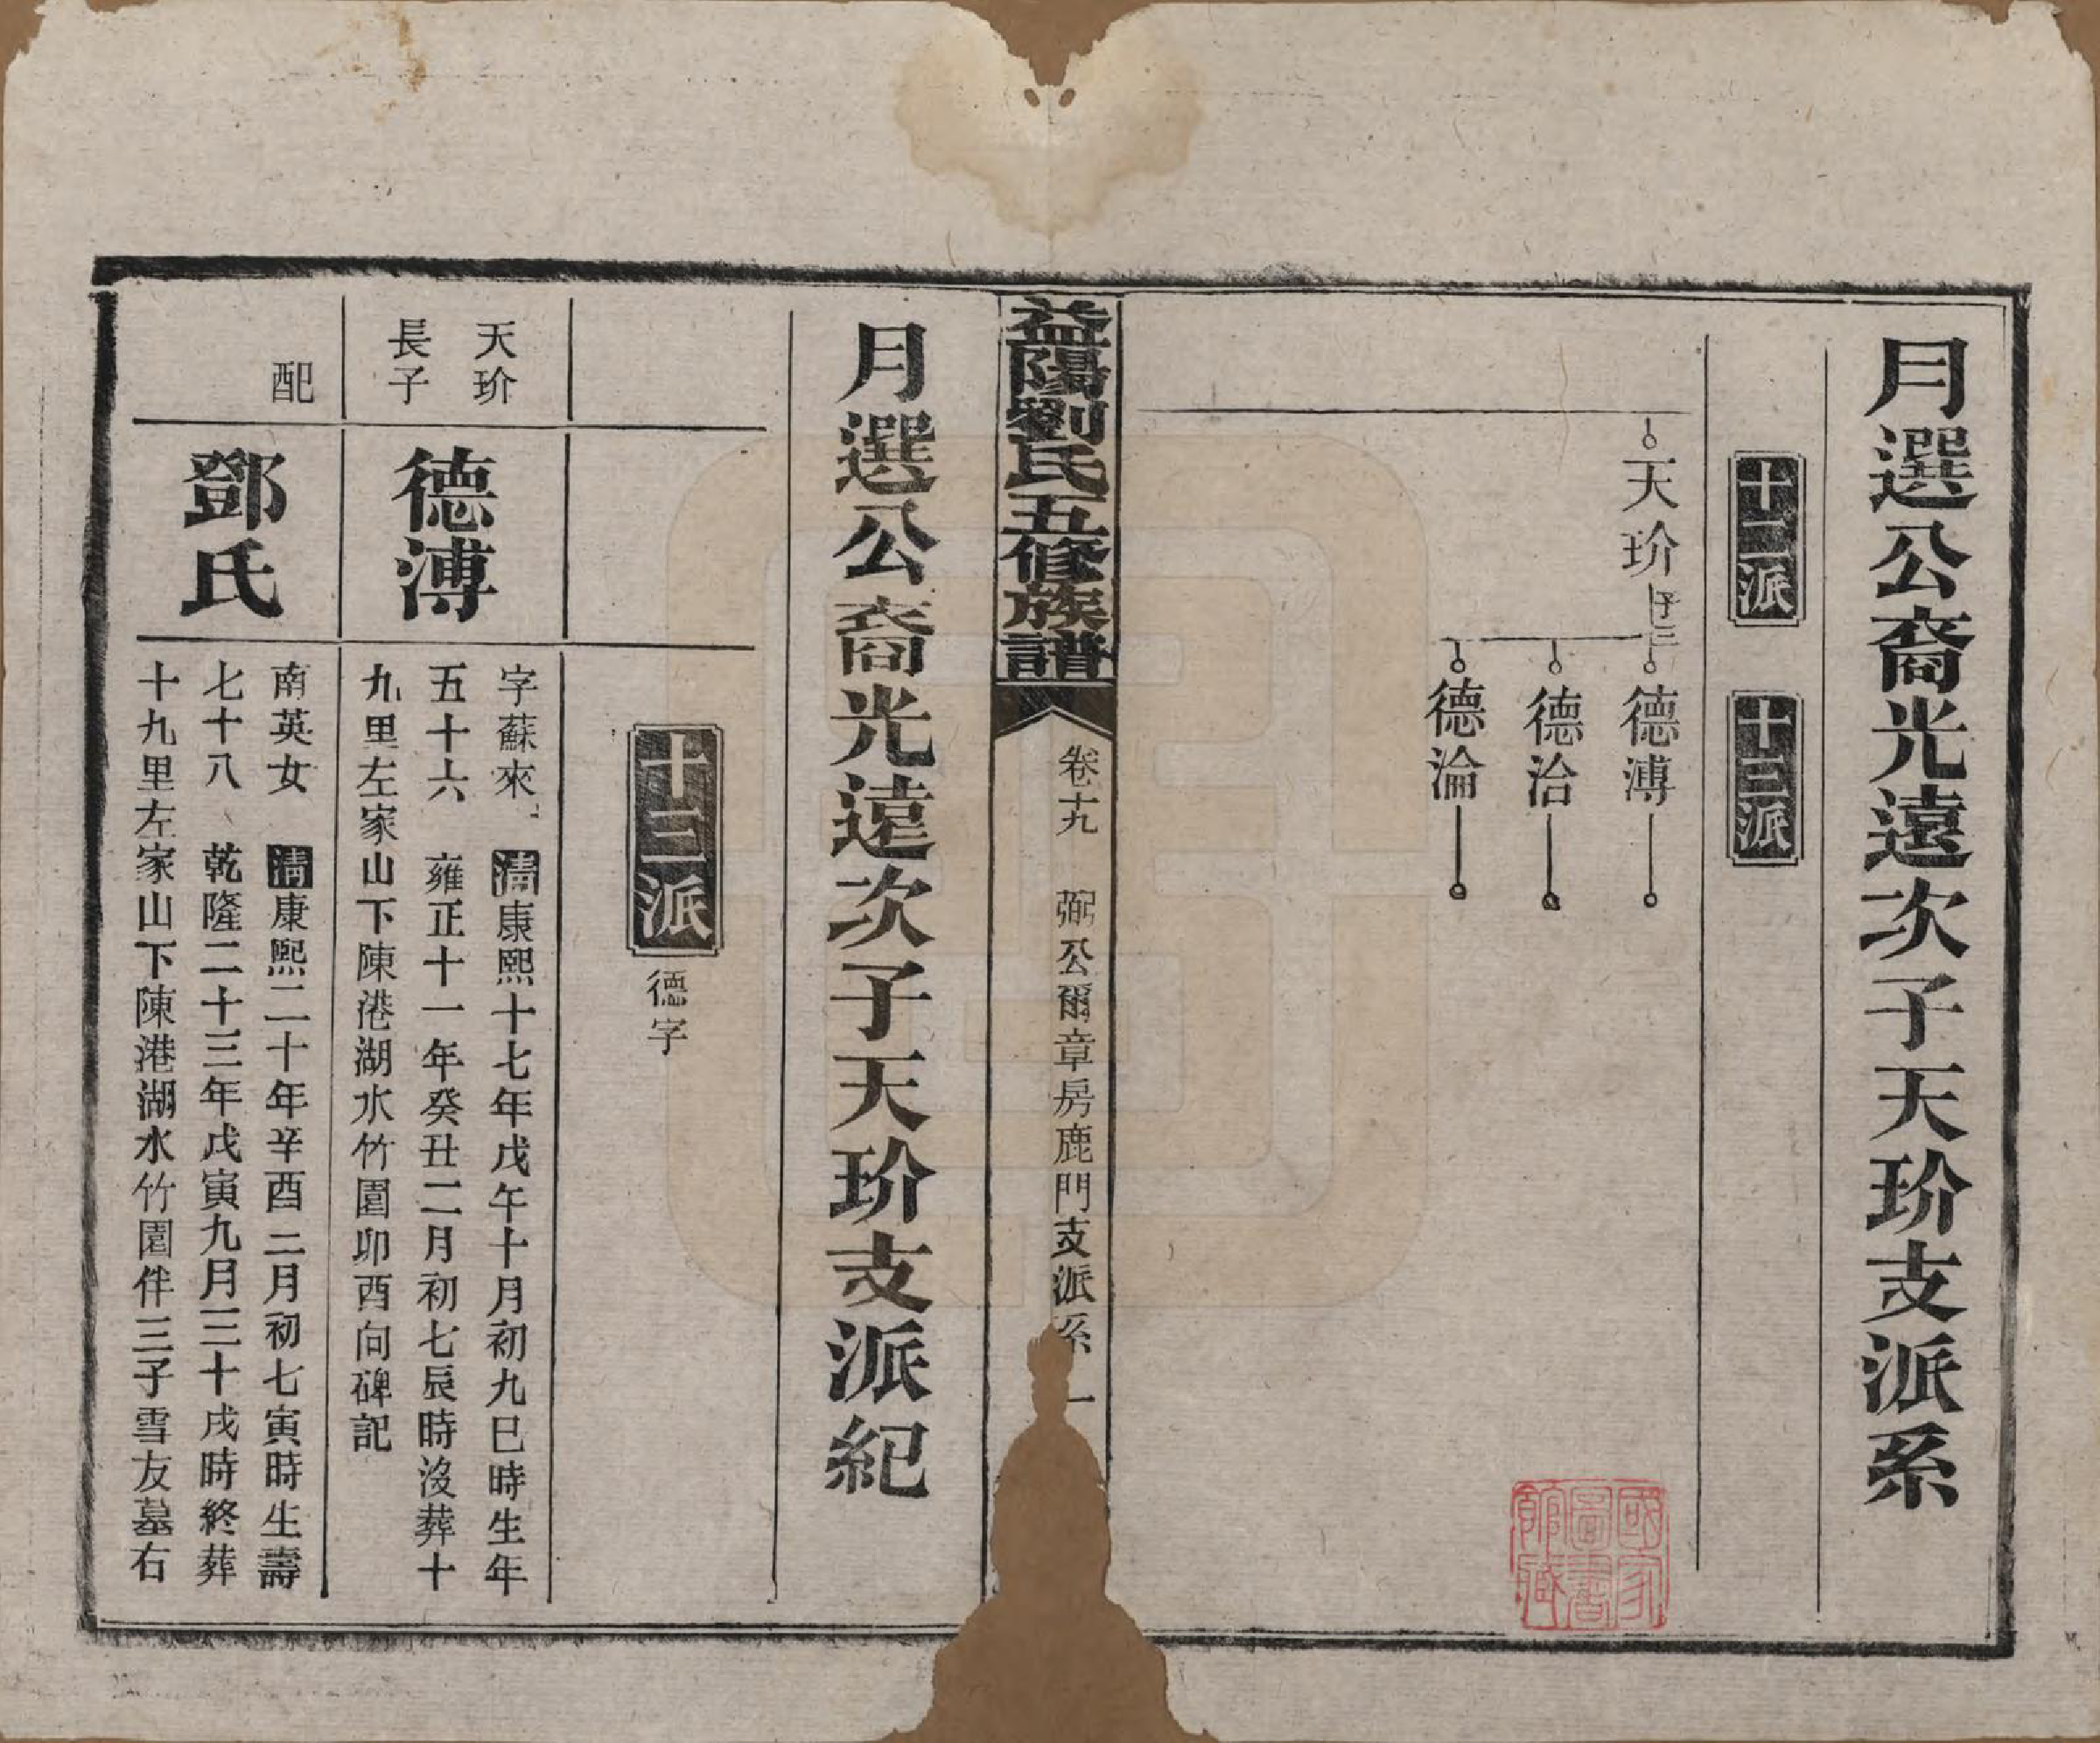 月選公裔光遠次子天玠支派系
十二派
十三派
天玠
子三
德溥
德治
德淪
國家
圖書
館藏
益陽劉氏五修族譜
卷十九
弼公爾章房鹿門支派系
一
月選公裔光遠次子天玠支派紀
十三派
德字
天玠
長子
德溥
字蘇來清康熙十七年戊午十月初九巳時生年
五十六雍正十一年癸丑二月初七辰時沒葬十
九里左家山下陳港湖水竹園卯酉向碑記
配
鄧氏
南英女清康熙二十年辛酉二月初七寅時生壽
七十八乾隆二十三年戊寅九月三十戌時終葬
十九里左家山下陳港湖水竹園伴三子雪友墓右